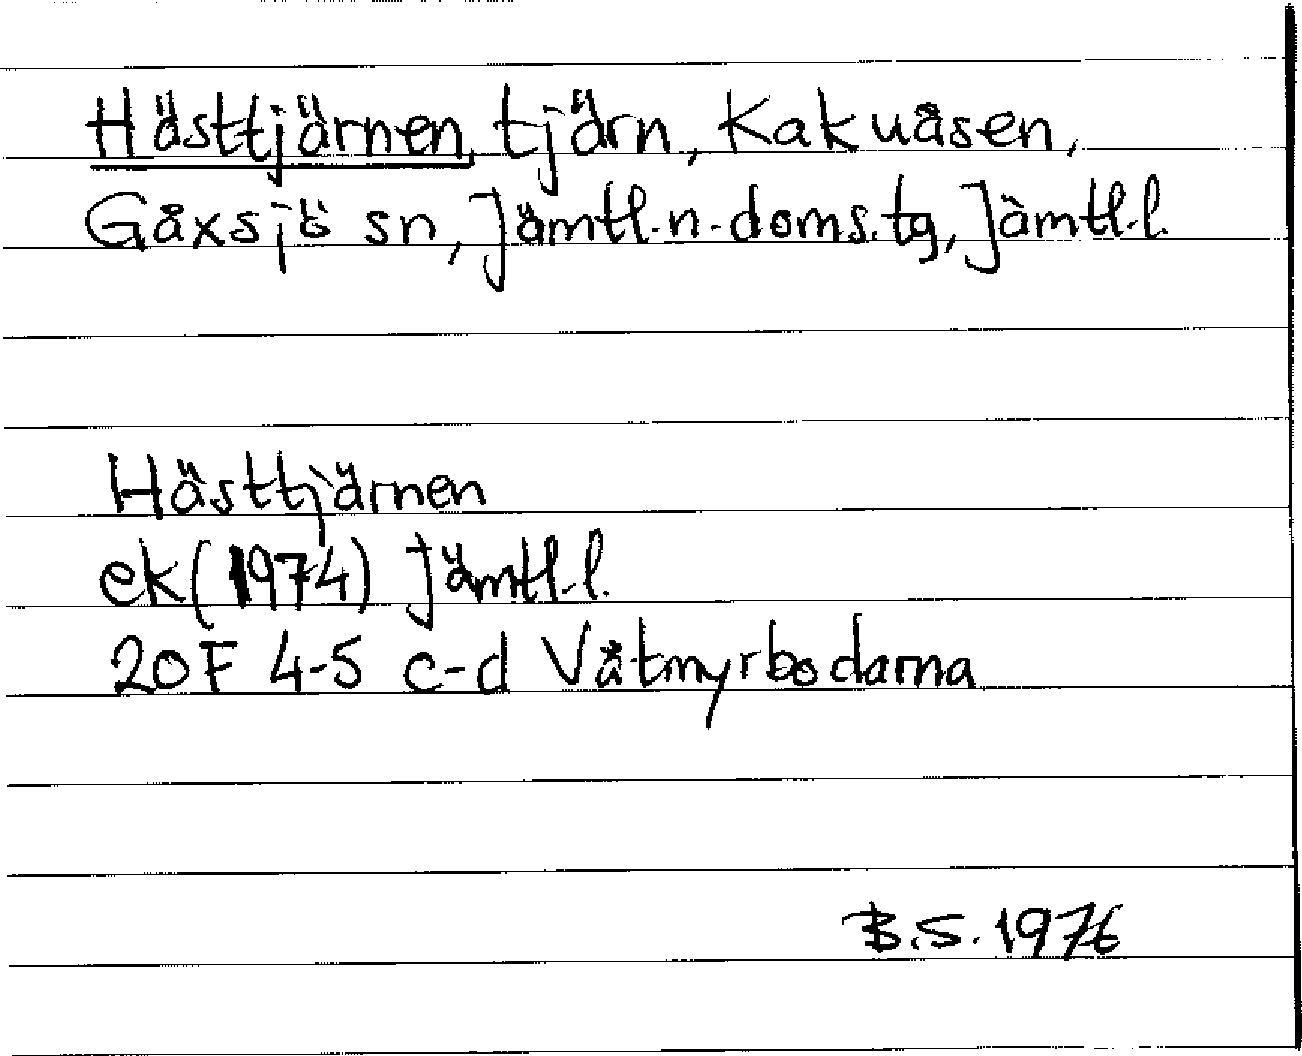 Hästtjärnen, tjärn, Kakuåsen,
Gåxsjö sn, Jämtl.n.doms.tg, Jämtl.l.
Hästtjärnen
ek(1974) Jämtl.l.
20F 4-5 c-d Våtmyrbodarna
B.S. 1976